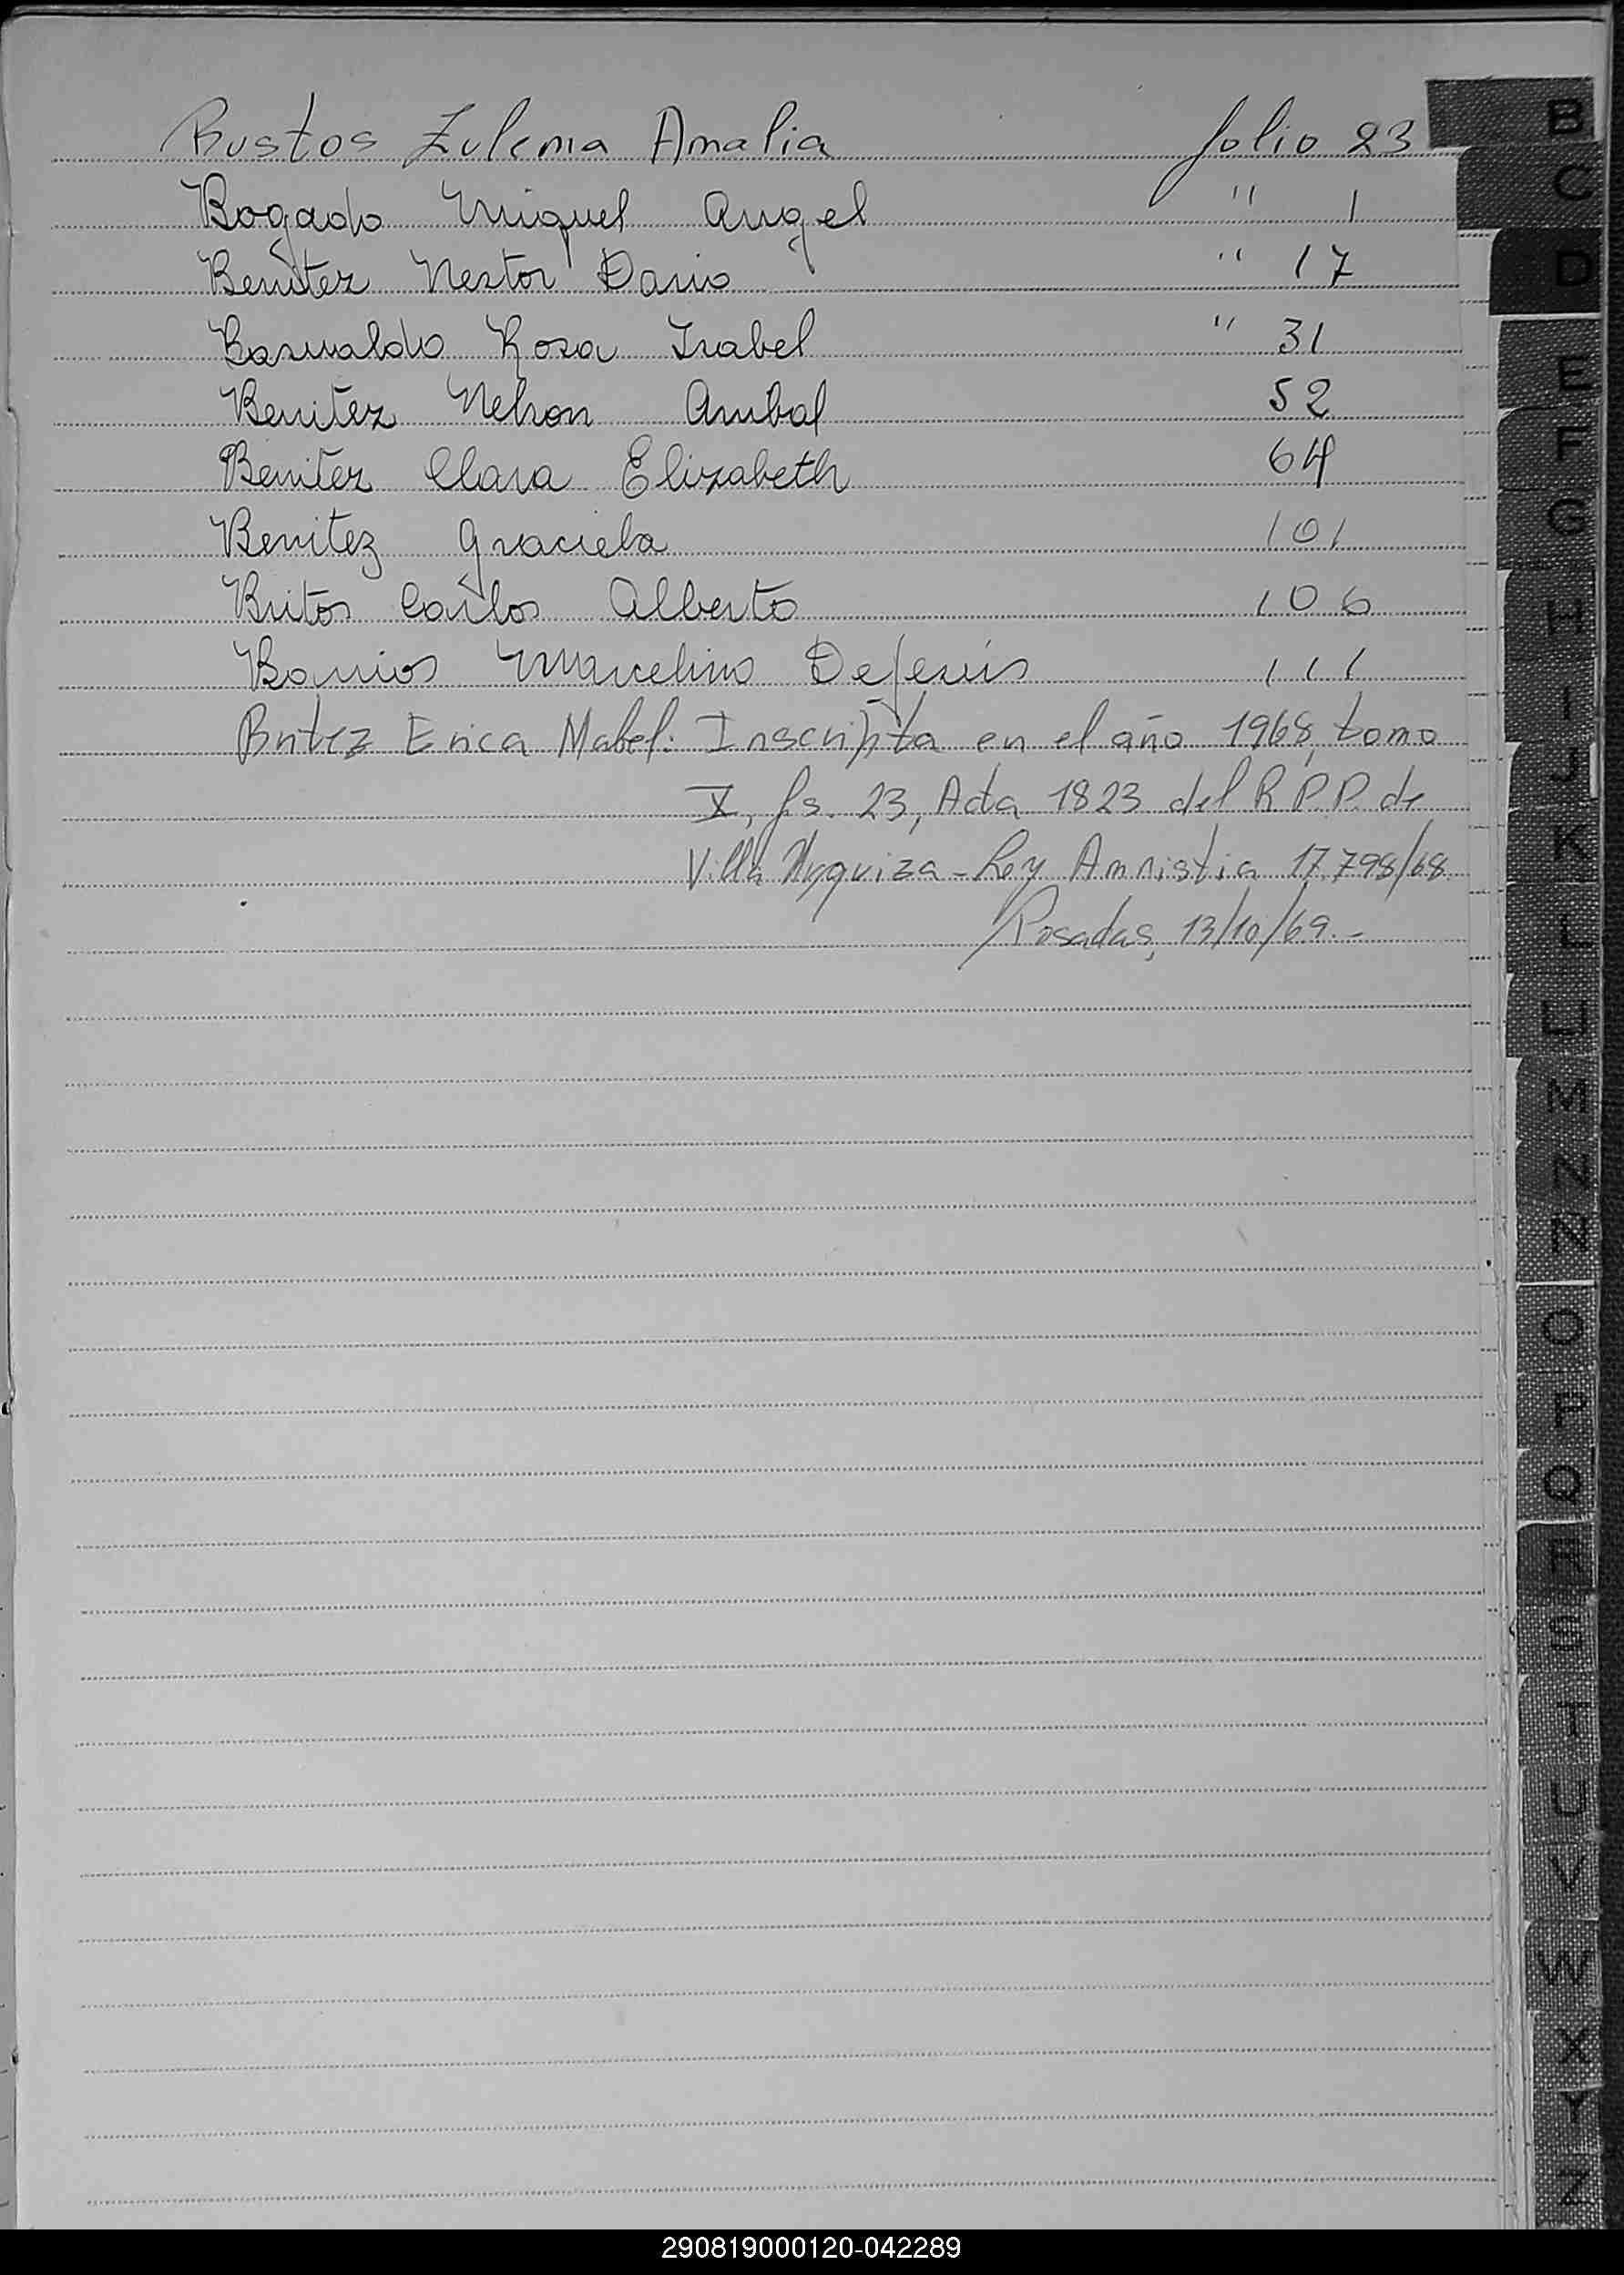 Bustos Zulema Amalia folio 23
Bogado Miguel Angel " 1
Benitez Nestor Dario " 17
Basualdo Rosa Isabel " 31
Benitez Nelson Anibal 52
Benitez Clara Elizabeth 64
Benitez Graciela 101
Britos Carlos Alberto 106
Barrios Marcelino De Jesús 111
Britez Erica Mabel: Inscripta en el año 1968, tomo
X, fs. 23, Acta 1823 del R.P.P. de
Villa - Ley Amnistia 17.798/68.
Posadas, 13/10/69.-
B
C
D
E
F
G
H
I
J
K
L
LL
M
N
Ñ
O
P
Q
R
S
T
U
V
W
X
Y
Z
290819000120-042289